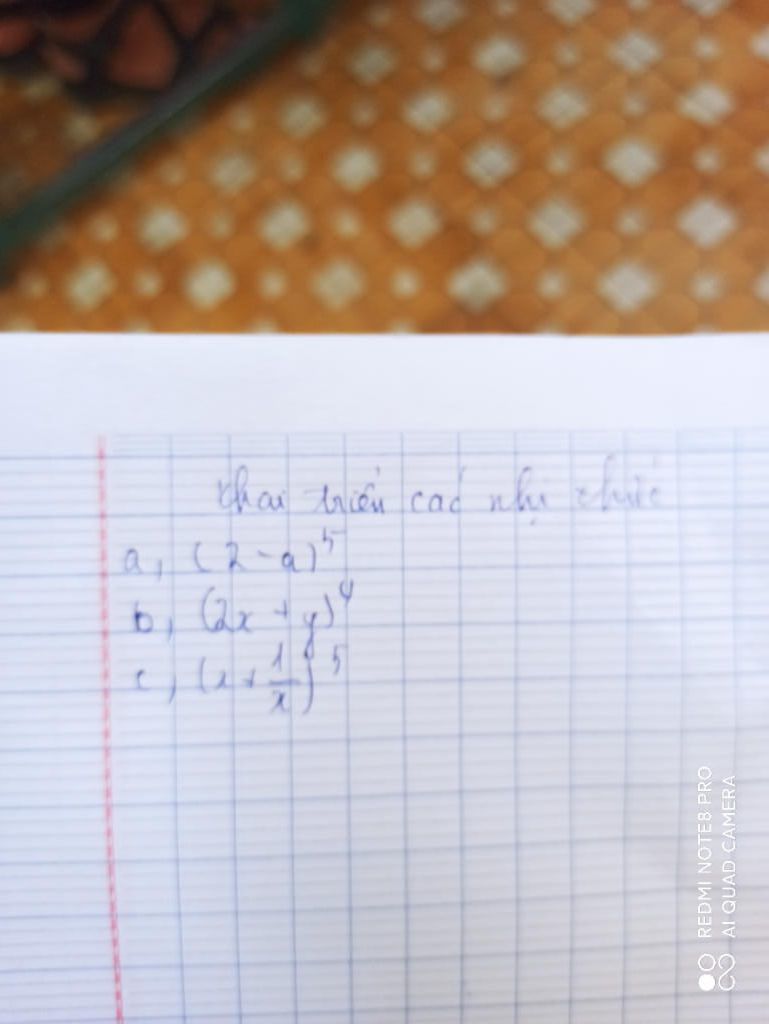 khai triển các nhị thức
a, (2 - a)⁵
b, (2x + y)⁴
c, (x + 1/x)⁵
REDMI NOTE8 PRO
AI QUAD CAMERA